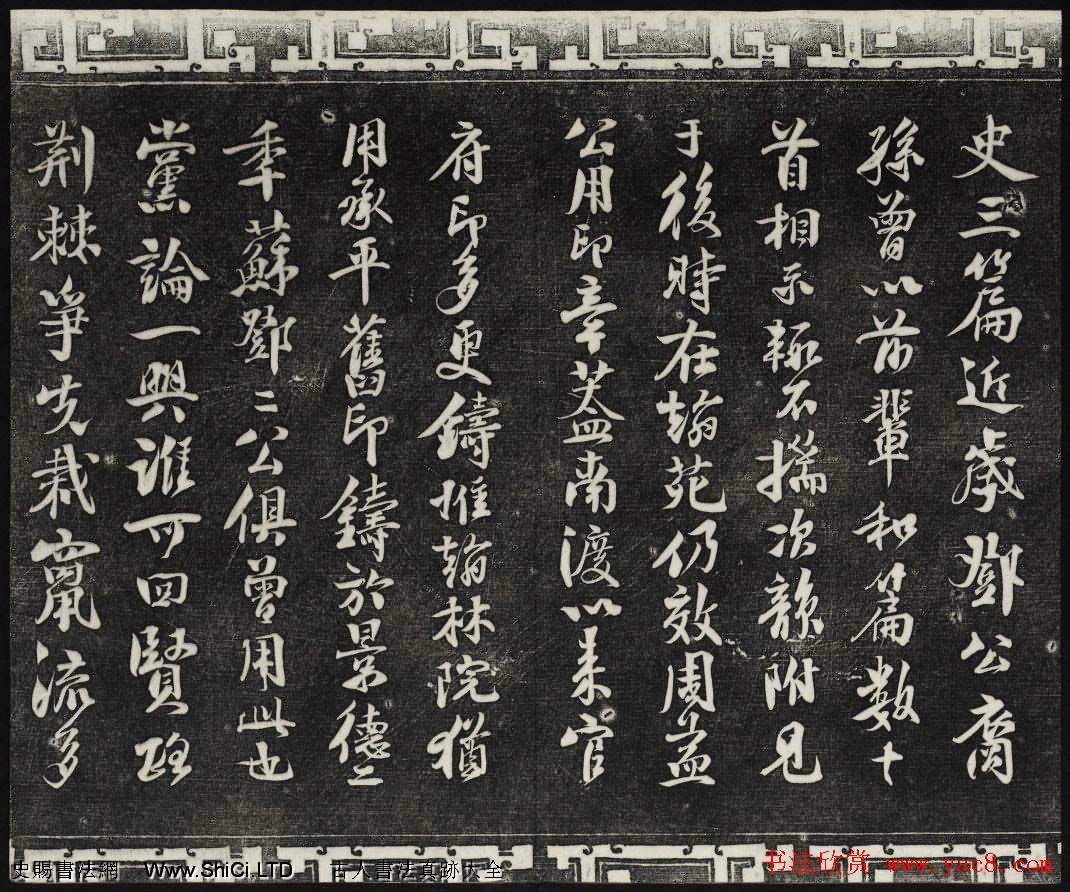 史三篇近歲鄧公裔
孫曾以前輩和篇數十
首相示輒不揣次韻附見
于後時在翰苑仍效周益
公用印章蓋南渡以来官
府印多更鑄惟翰林院猶
用承平舊印鑄於景德二
年蘇鄧二公俱曾用此也
黨論一興誰可回賢路
荆棘爭先栽竄流多
史賜書法網 Www.ShiCi.LTD 古人書法真跡大全
书法欣赏 www.yac8.com